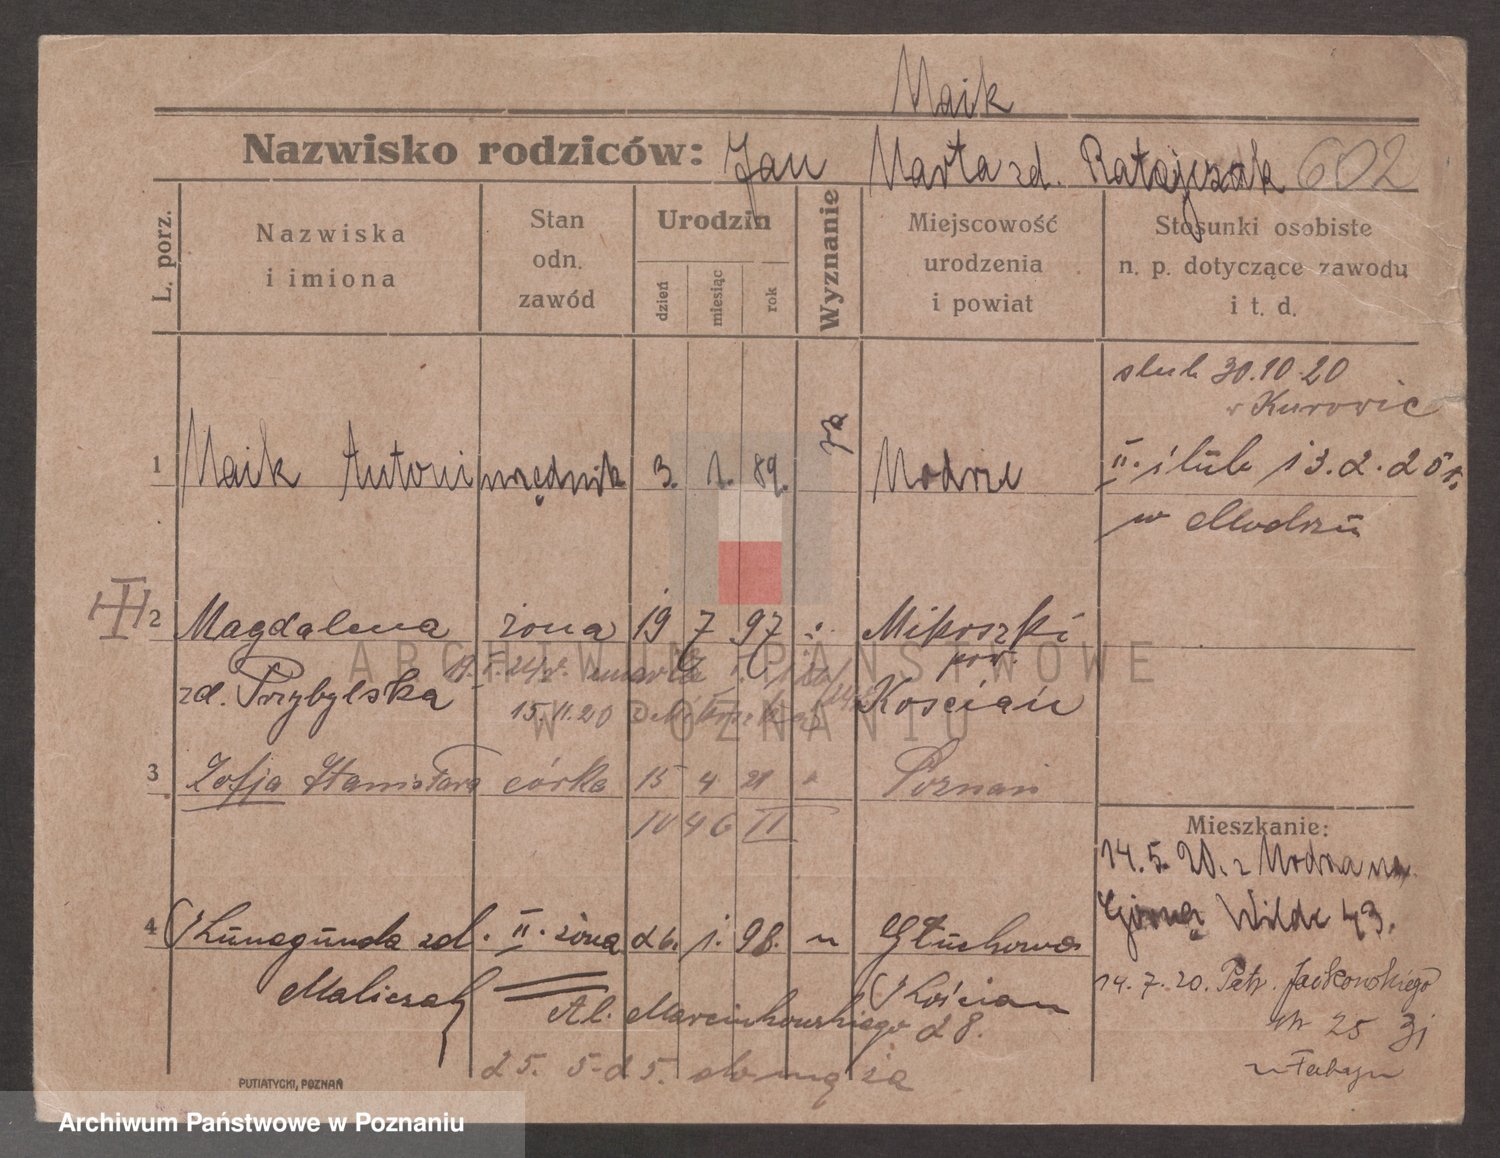 Maik
Nazwisko rodziców: Jan Marta zd. Ratajczak 602
L. porz.
Nazwiska i imiona
Stan odn. zawód
Urodzin
dzień
miesiąc
rok
Wyznanie
Miejscowość urodzenia i powiat
Stosunki osobiste n. p. dotyczące zawodu i t. d.
ślub 30.10.20
w Kurowie
1 Maik Antoni urzędnik 3. 1. 89. Modrze
II. ślub 13.2.25 r.
w Modrzu
2 Magdalena żona 19 7 97 Mikoszki
pow.
zd. Przybylska umarła Kościan
15.11.20
3 Zofja Stanisława córka 15 4 21 " Poznań
10 46 II
Mieszkanie:
14.5.20. z Modrza na
Górną Wildę 43.
4 Kunegunda zd. II. żona 26. 1. 98. " Głuchowo
Maliczak Kościan
14.7.20. Patr. Jackowskiego
Al. Marcinkowskiego 28.
25 3j
25. 5. 25. do męża
PUTIATYCKI, POZNAŃ
ARCHIWUM PAŃSTWOWE
W POZNANIU
Archiwum Państwowe w Poznaniu